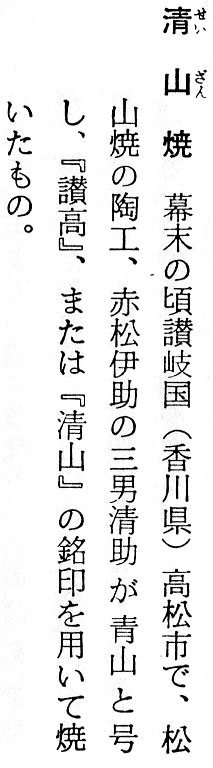 清山焼　幕末の頃讃岐国（香川県）高松市で、松
山焼の陶工、赤松伊助の三男清助が青山と号
し、『讃高』、または『清山』の銘印を用いて焼
いたもの。
せい
ざん